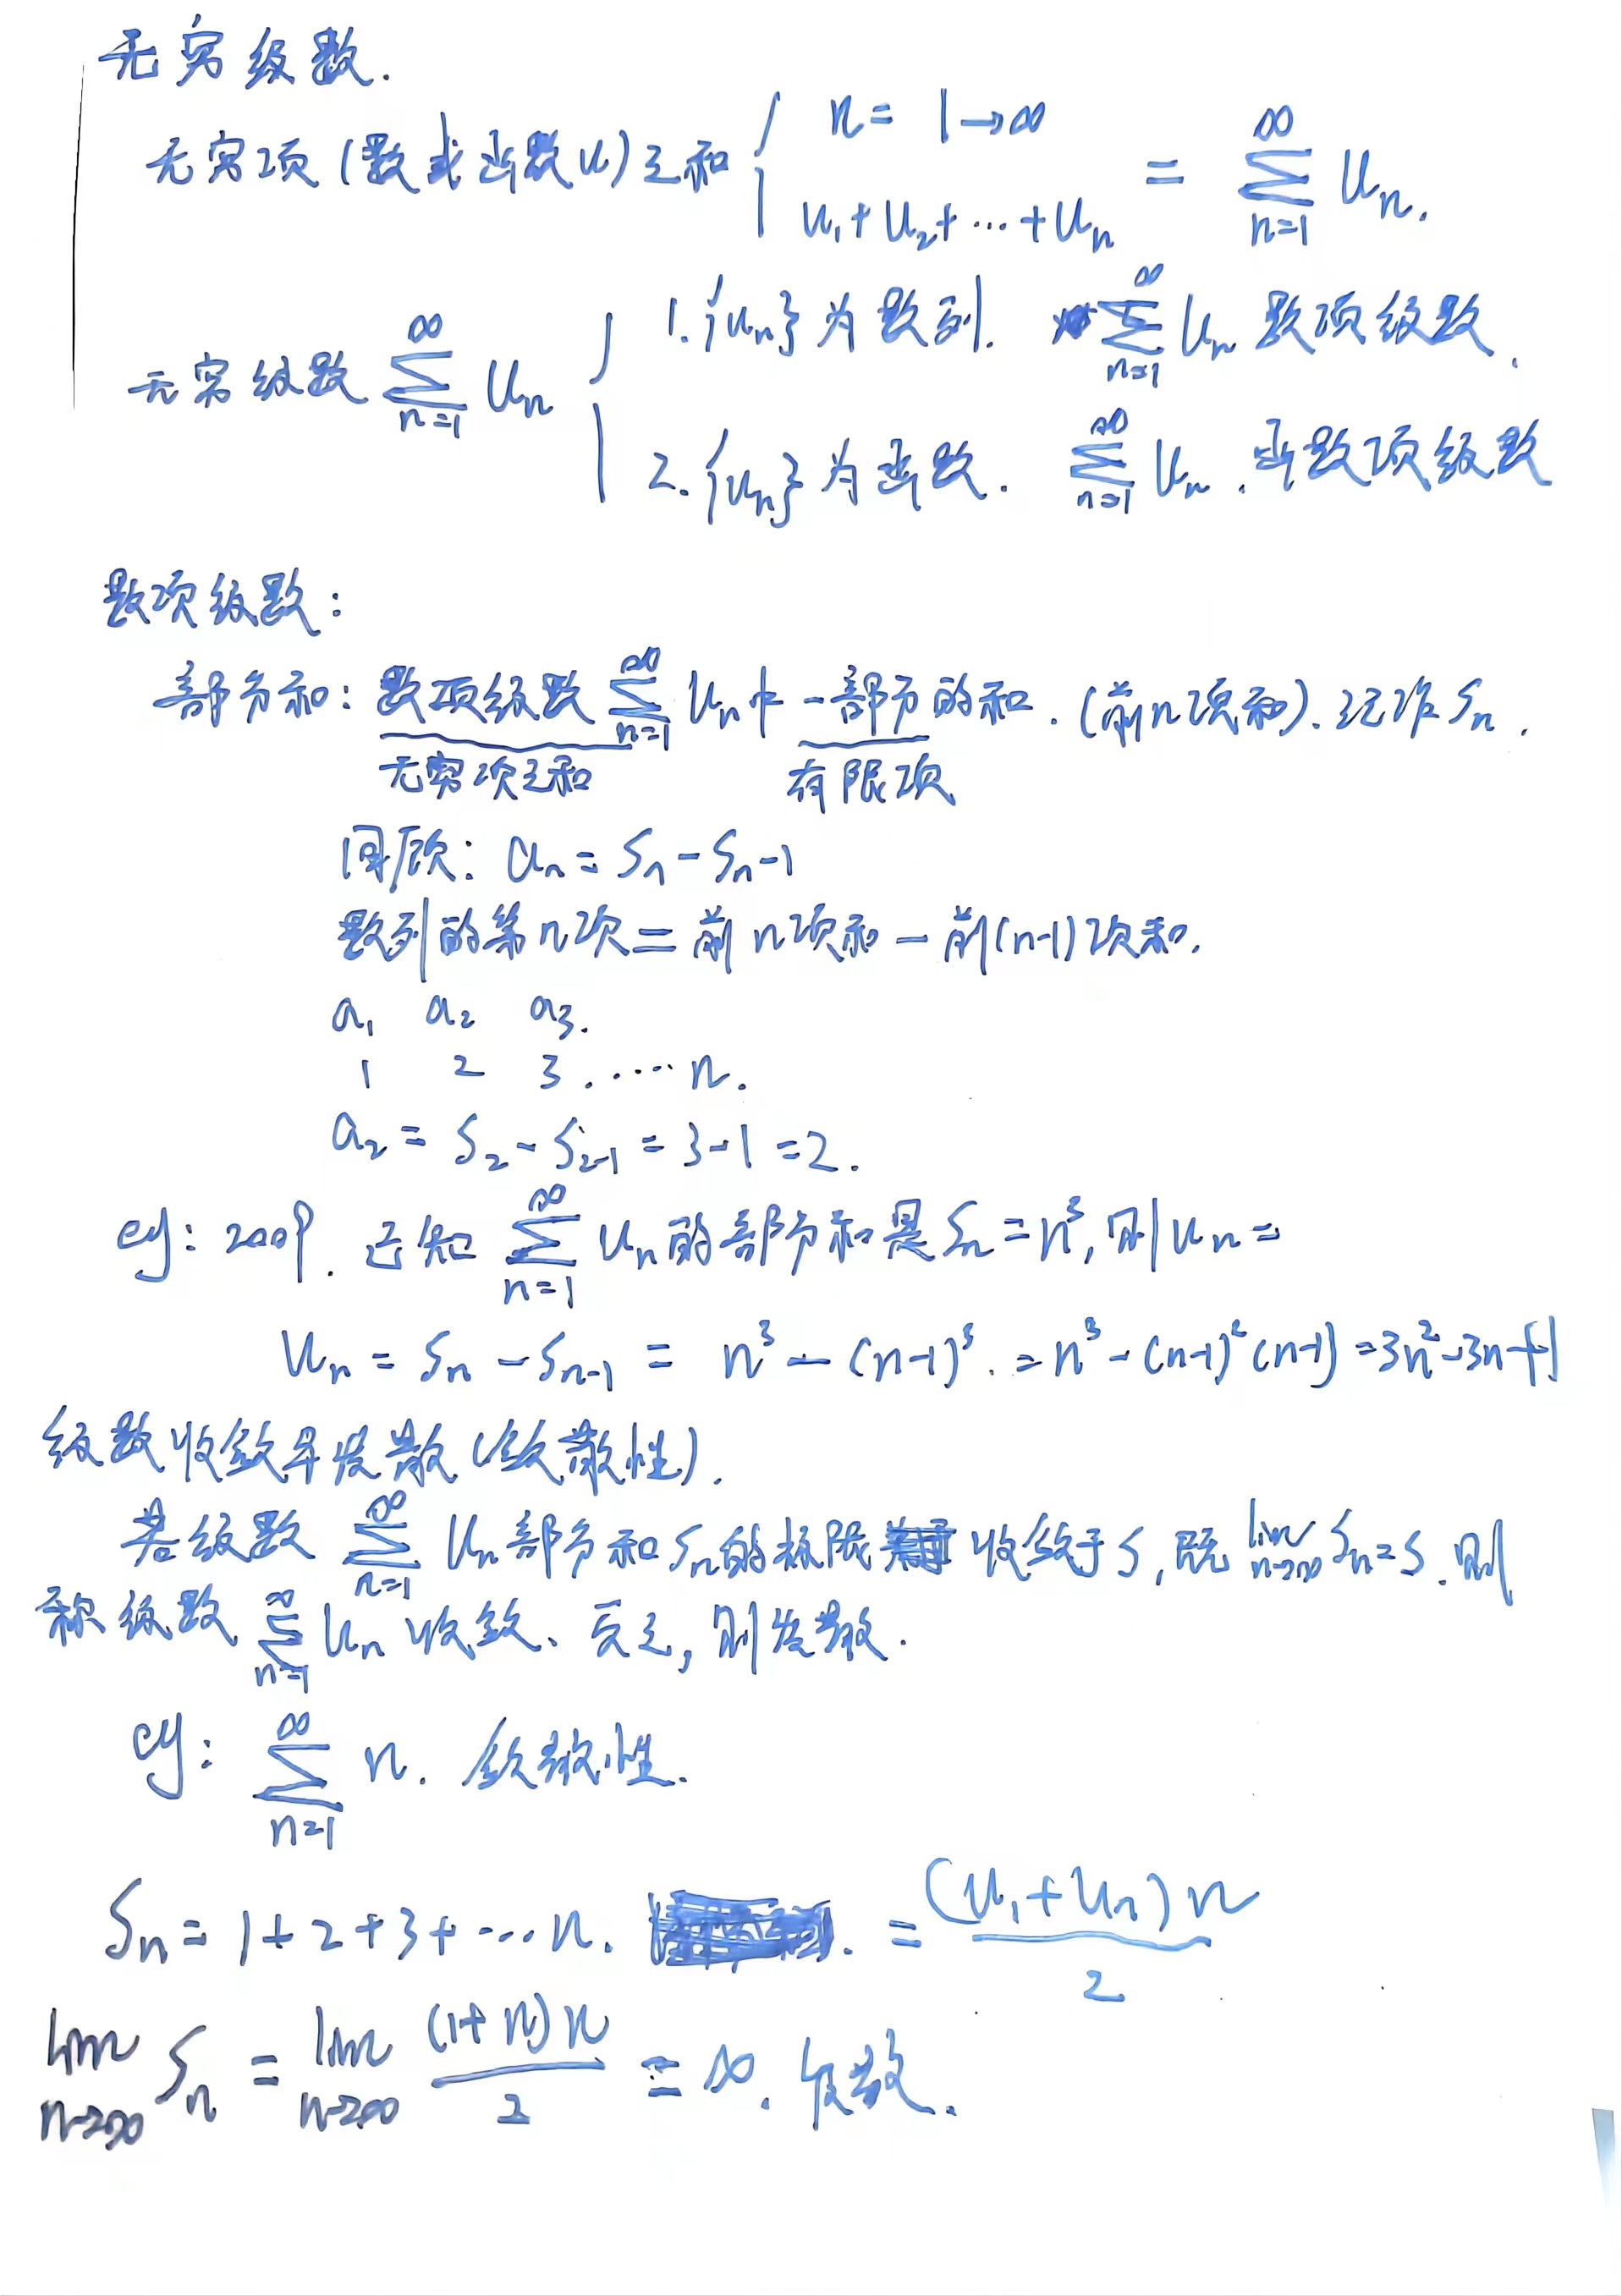 无穷级数.
无穷项(数或函数u)之和 { n = 1→∞ u₁+u₂+…+uₙ = ∑_{n=1}^{∞} uₙ.
无穷级数 ∑_{n=1}^{∞} uₙ {
1. {uₙ}为数列. ∑_{n=1}^{∞} uₙ 数项级数.
2. {uₙ}为函数. ∑_{n=1}^{∞} uₙ. 函数项级数
数项级数:
部分和: 数项级数 ∑_{n=1}^{∞} uₙ 中 一部分的和. (前n项和). 记作 Sₙ.
无穷项之和 有限项
回顾: aₙ = Sₙ - Sₙ₋₁
数列的第n项 = 前n项和 - 前(n-1)项和.
a₁ a₂ a₃.
1 2 3 . ···· n.
a₂ = S₂ - S₂₋₁ = 3-1 = 2.
eg: 2009. 已知 ∑_{n=1}^{∞} uₙ 的部分和是 Sₙ = n³, 则 uₙ =
uₙ = Sₙ - Sₙ₋₁ = n³ - (n-1)³. = n³ - (n-1)²(n-1) = 3n²-3n+1
级数收敛与发散(敛散性).
若级数 ∑_{n=1}^{∞} uₙ 部分和 Sₙ 的极限 收敛于 S, 既 lim_{n→∞} Sₙ = S. 则
称级数 ∑_{n=1}^{∞} uₙ 收敛、反之, 则发散.
eg: ∑_{n=1}^{∞} n. 敛散性.
Sₙ = 1+2+3+ ··· n. = (u₁+uₙ)n / 2
lim_{n→∞} Sₙ = lim_{n→∞} (1+n)n / 2 = ∞. 发散.